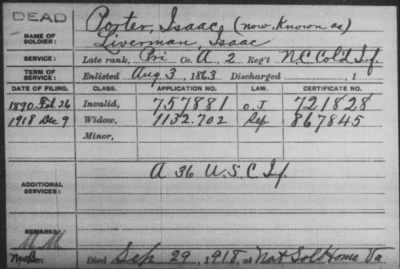 DEAD
Porter, Isaac (now Known as)
NAME OF SOLDIER: Liverman, Isaac
SERVICE: Late rank, Pri Co. A, 2 Reg't N.C. Col'd Inf.
TERM OF SERVICE: Enlisted Aug. 3, 1863 Discharged , 1
DATE OF FILING. CLASS. APPLICATION NO. LAW. CERTIFICATE NO.
1890 Feb 26 Invalid, 757881 O.J 721828
1918 Dec 9 Widow, 1132.702 Rep 867845
Minor,
ADDITIONAL SERVICES: A 36 U.S.C Inf.
REMARKS:
Died Sep 29, 1918, at Nat Sold Home Va